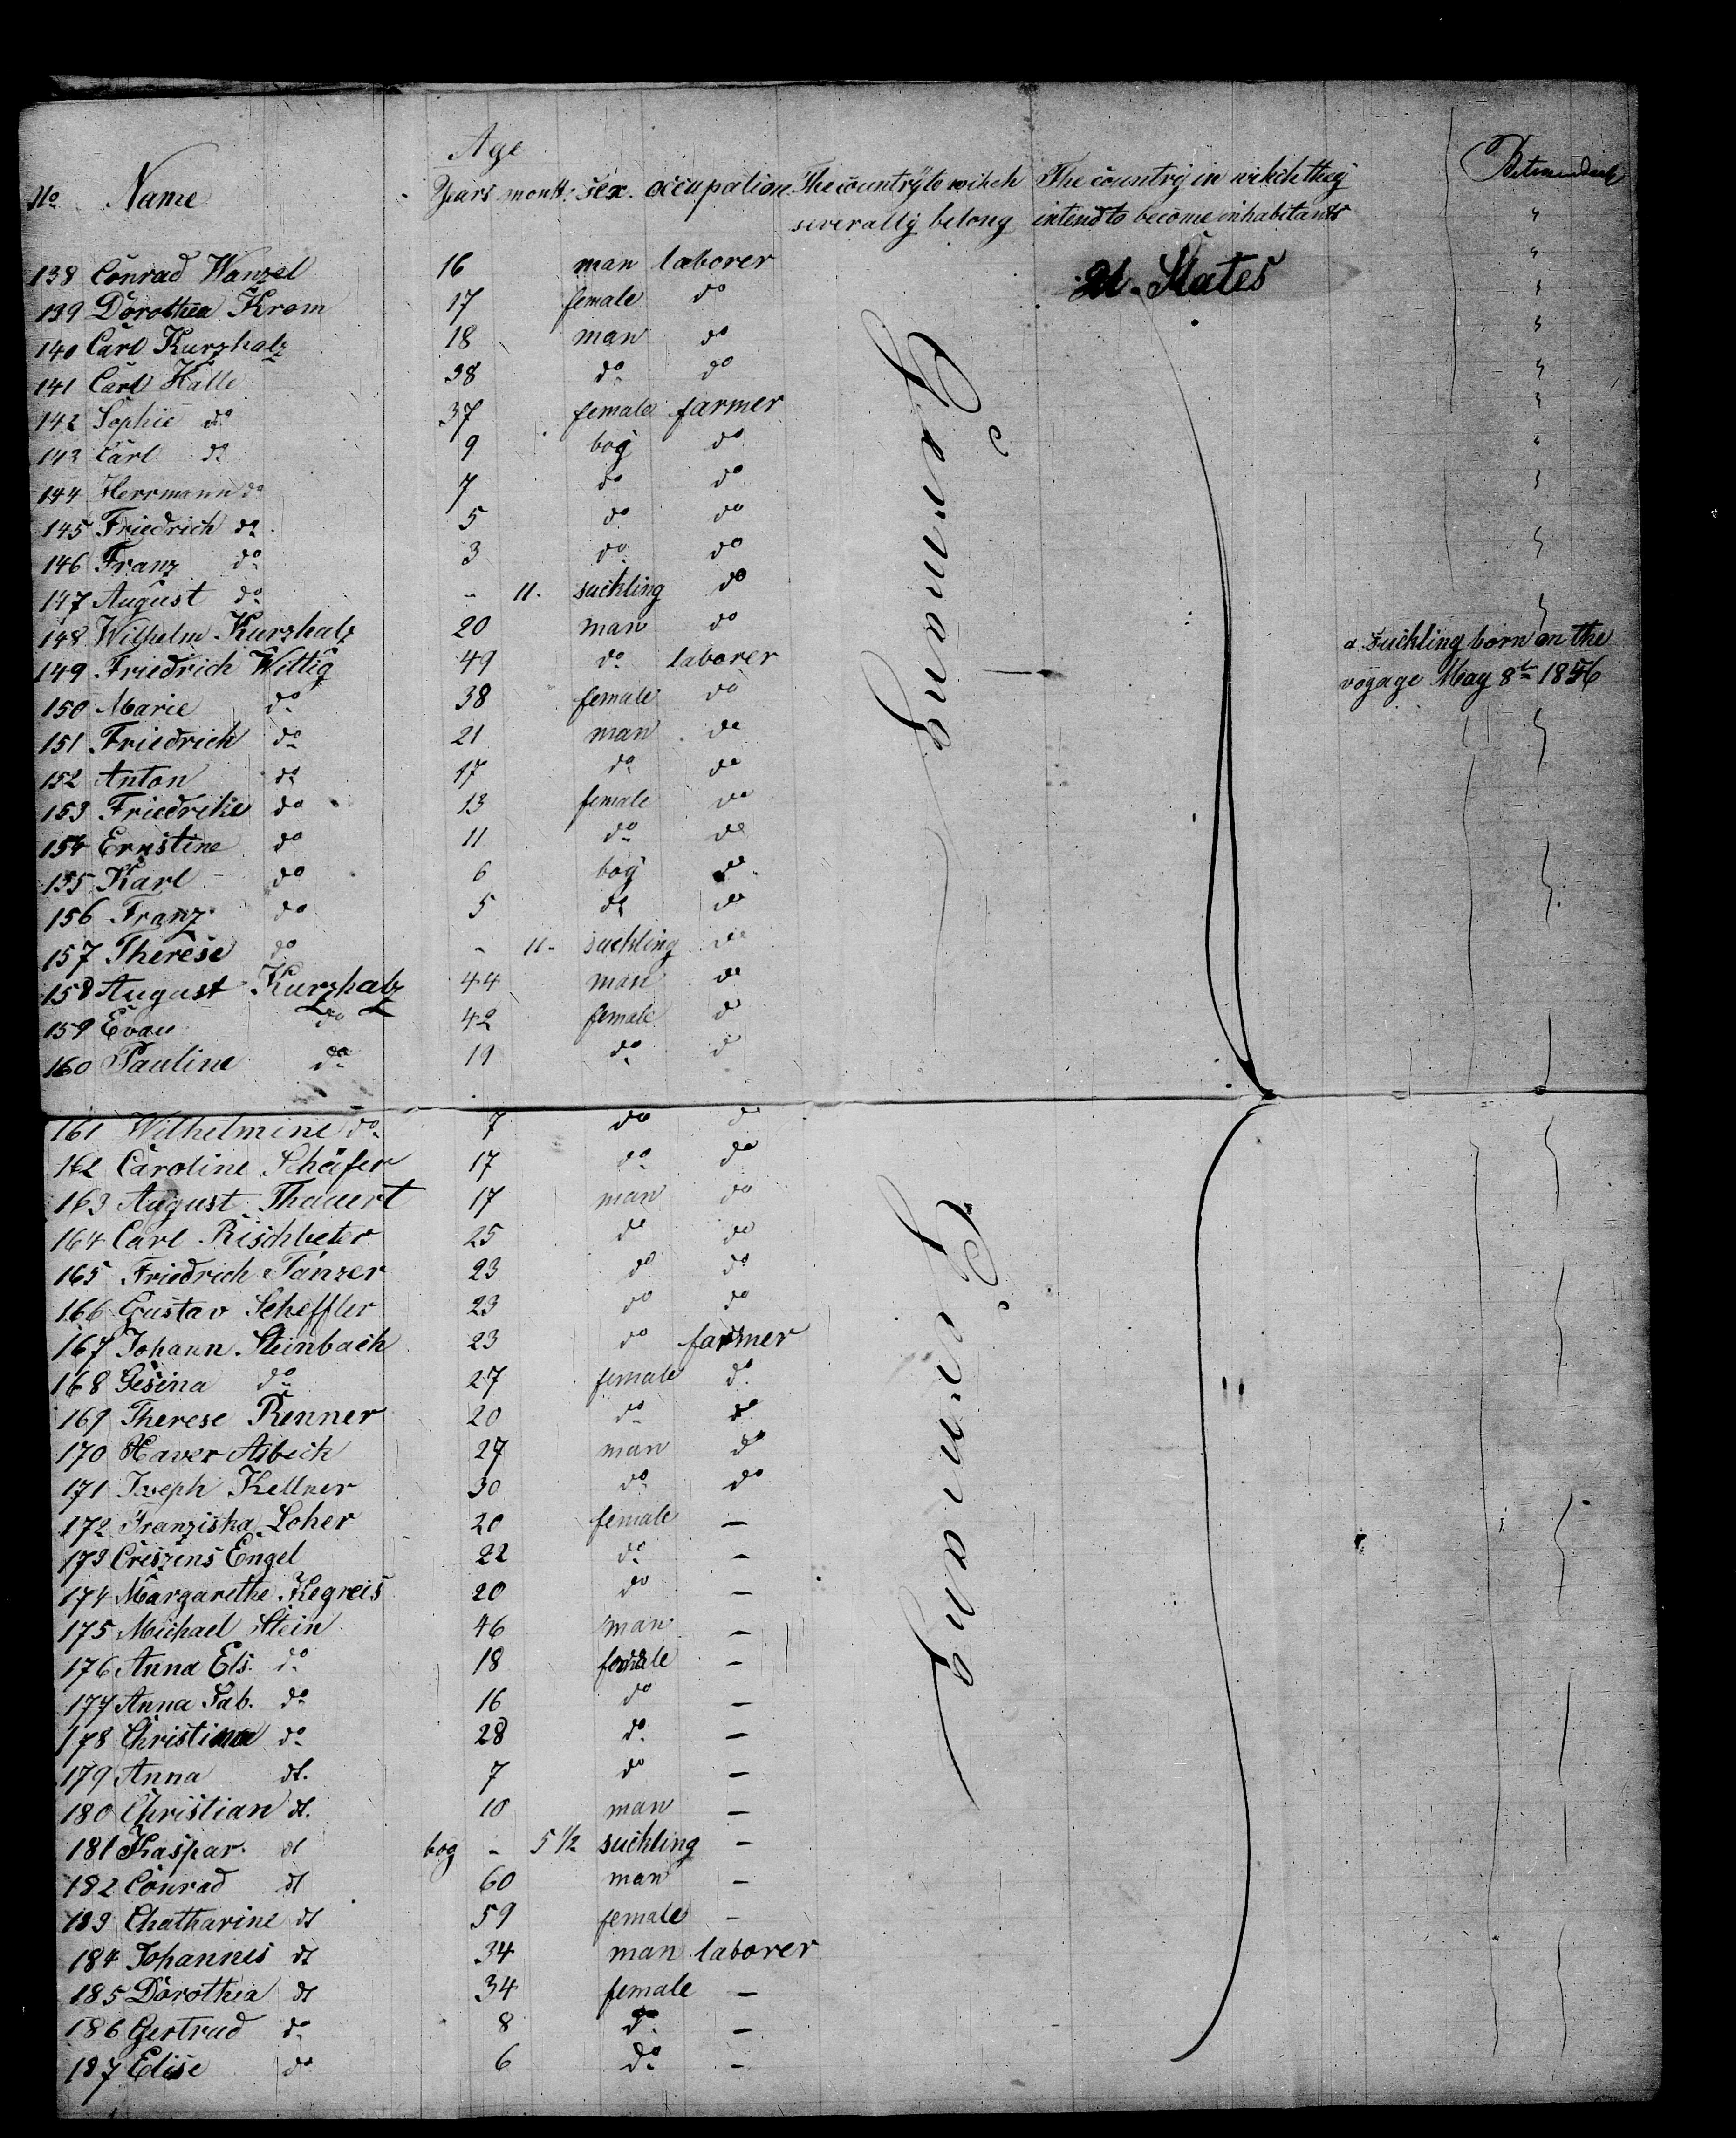 Age
No Name Years month: sex. occupation The country to which The country in which they
severally belong intend to become inhabitants
138 Conrad Wenzel 16 man laborer U. States
139 Dorothea Krom 17 female do
140 Carl Kurzhalz 18 man do
141 Carl Kalle 38 do do
142 Sophie do 37 female farmer
143 Carl do 9 boy do
144 Herrmann do 7 do do
145 Friedrich do 5 do do
146 Franz do 3 do do
147 August do - 11. suckling do
148 Wilhelm Kurzhalz 20 man do a suckling born on the
149 Friedrich Wittig 49 do laborer voyage May 8th 1856
150 Marie do 38 female do
151 Friedrich do 21 man do
152 Anton do 17 do do
153 Friedrike do 13 female do
154 Ernstine do 11 do do
155 Karl do 6 boy do
156 Franz do 5 do do
157 Therese do - 11- suckling do
158 August Kurzhalz 44 man do
159 Evau do 42 female do
160 Pauline do 19 do do
Germany
161 Wilhelmine do 7 do do
162 Caroline Schäfer 17 do do
163 August Thauert 17 man do
164 Carl Rischbeter 25 do do
165 Friedrich Tänzer 23 do do
166 Gustav Scheffler 23 do do
167 Johann Steinbach 23 do farmer
168 Gesina do 27 female do
169 Therese Renner 20 do do
170 Xaver Asbeck 27 man do
171 Joseph Kellner 30 do do
172 Franziska Loher 20 female -
173 Creszens Engel 22 do -
174 Margarethe Kegreis 20 do -
175 Michael Stein 46 man -
176 Anna Els. do 18 female -
177 Anna Sab. do 16 do -
178 Christina do 28 do -
179 Anna do. 7 do -
180 Christian do. 10 man -
181 Kaspar do boy - 5 1/2 suckling -
182 Conrad do 60 man -
183 Chatharine do 59 female -
184 Johannes do 34 man laborer
185 Dorothea do 34 female -
186 Gertrud do 8 do -
187 Elise do 6 do -
Germany